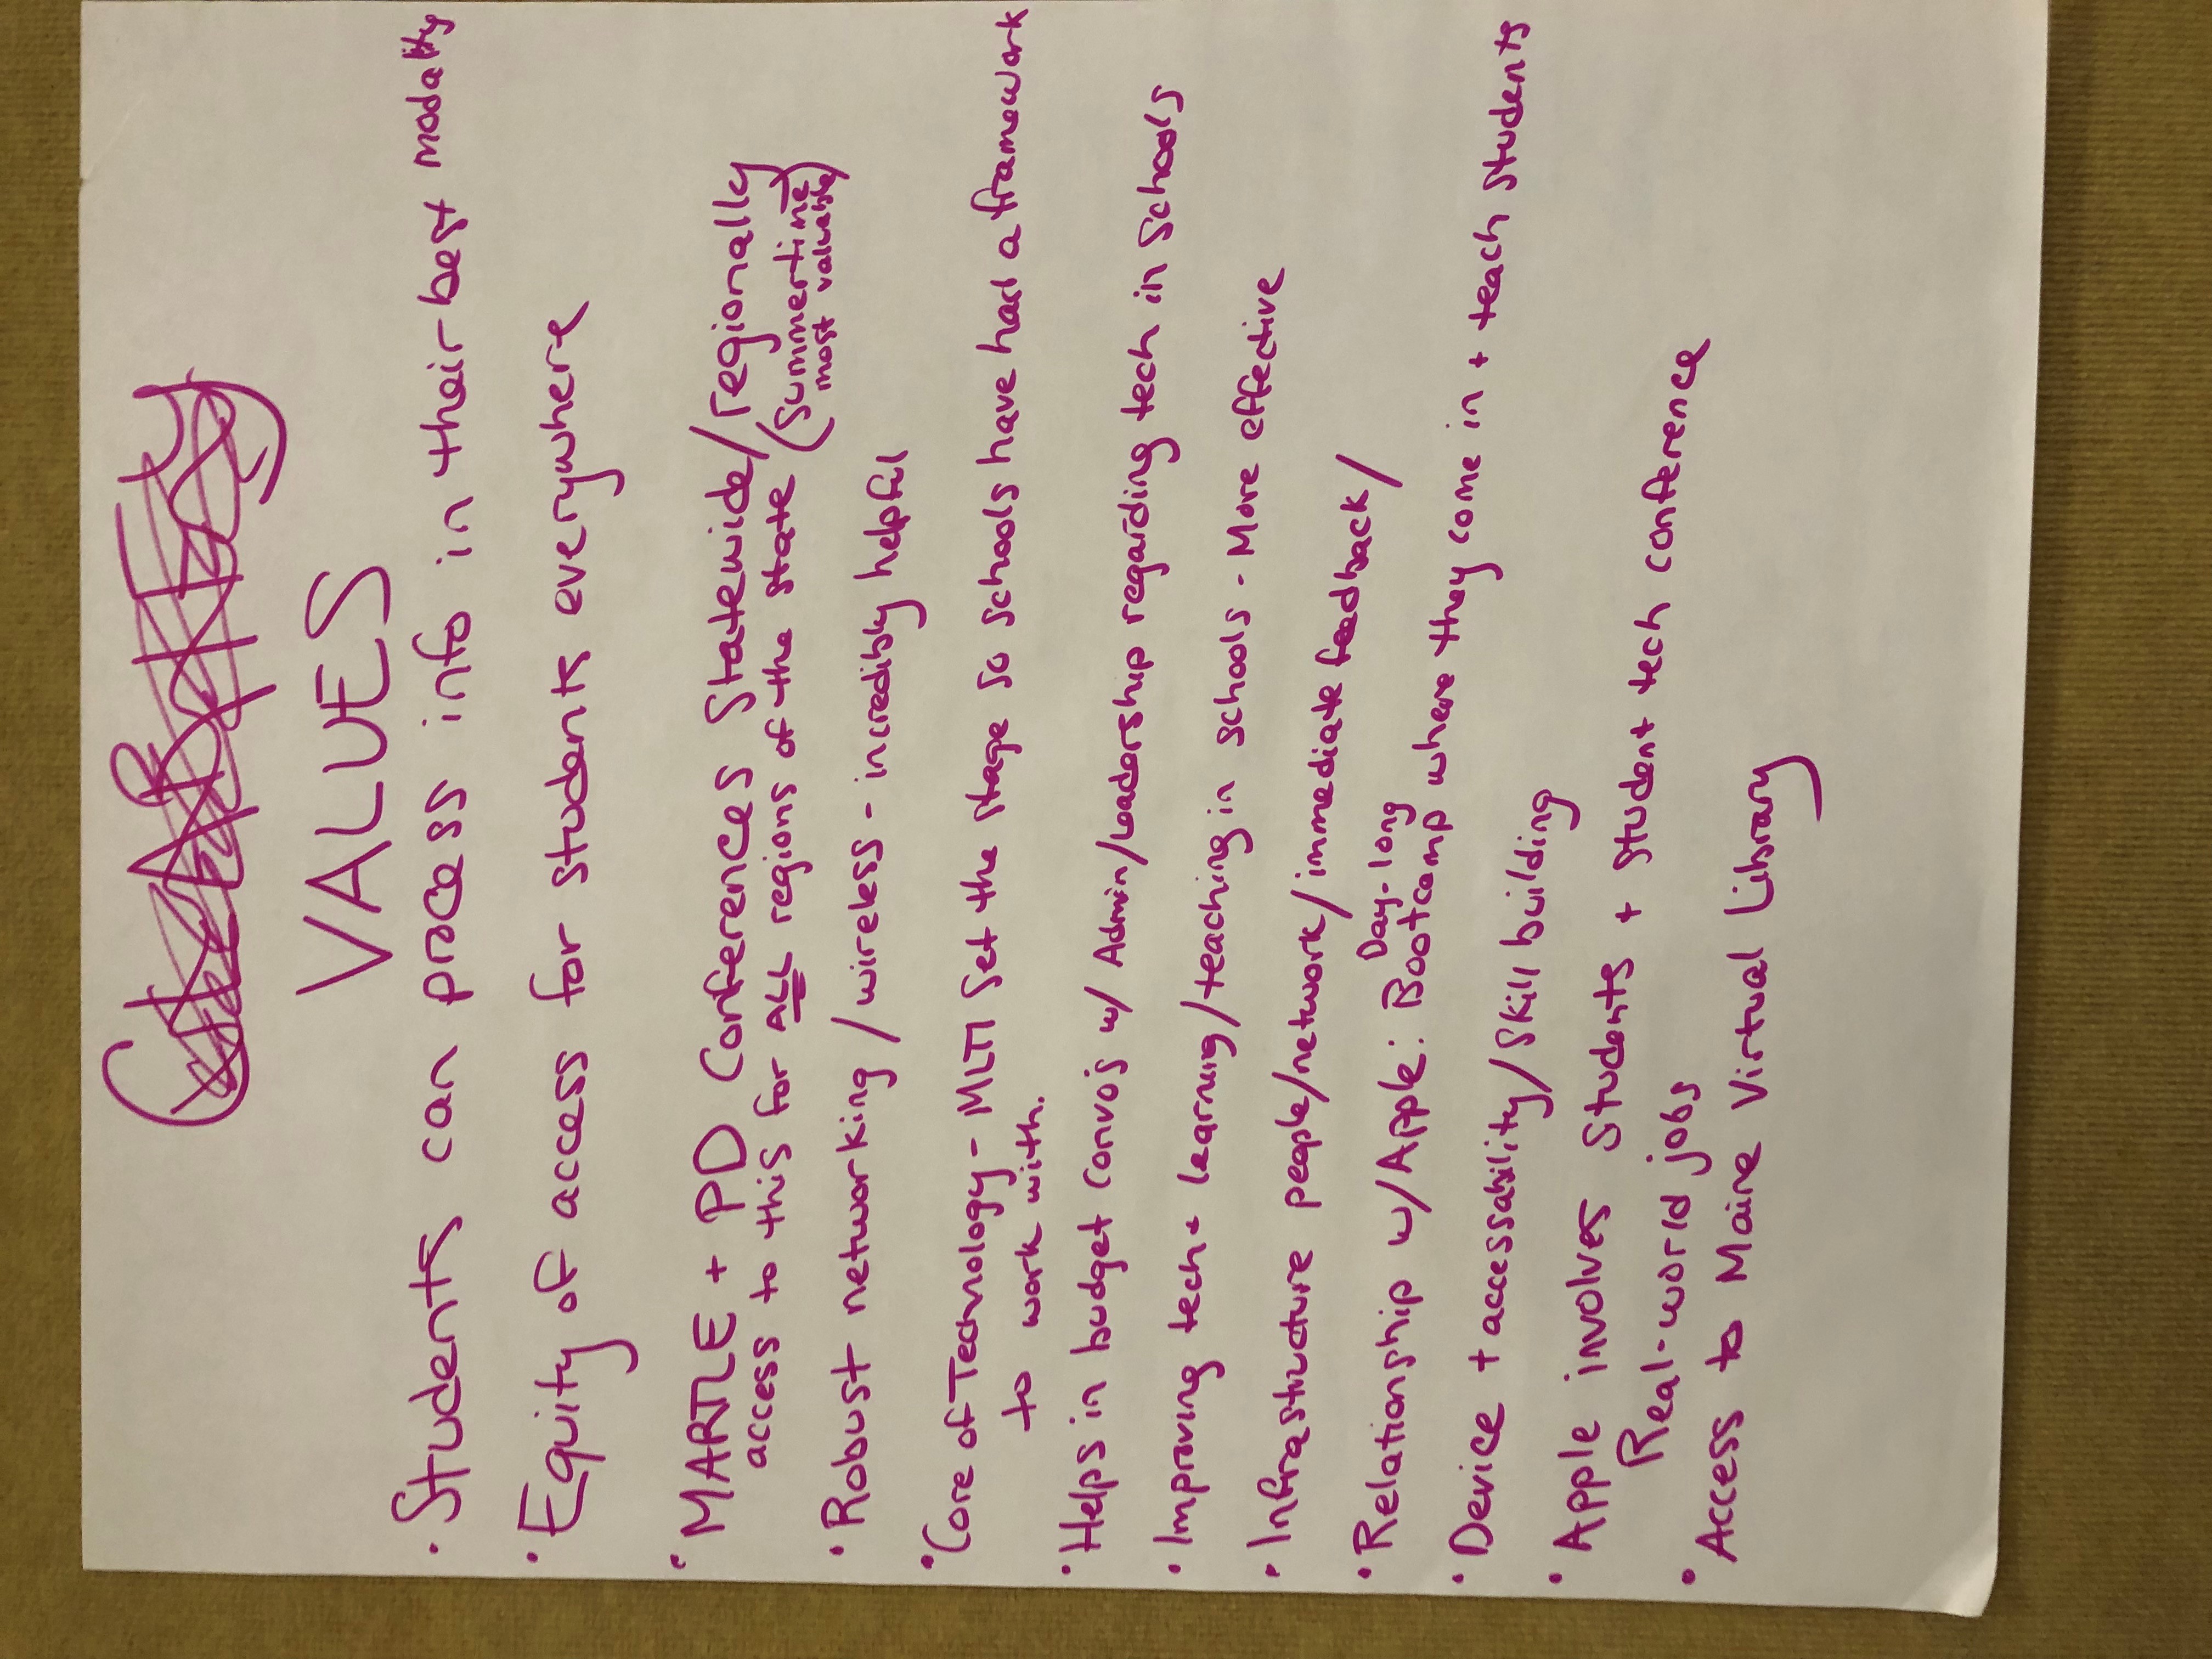 VALUES
• Students can process info in their best modality
• Equity of access for students everywhere
• MARTLE + PD Conferences Statewide/regionally
access to this for ALL regions of the state (summertime most valuable)
• Robust networking / wireless - incredibly helpful
• Core of Technology - MLTI Set the stage so schools have had a framework
to work with.
• Helps in budget convo's w/ Admin/Leadership regarding tech in schools
• Improving tech + learning/teaching in schools - More effective
• Infrastructure people/network/immediate feedback/
• Relationship w/Apple: Day-long Bootcamp where they come in + teach students
• Device + accessability/skill building
• Apple involves students + student tech conference
Real-world jobs
• Access to Maine Virtual Library